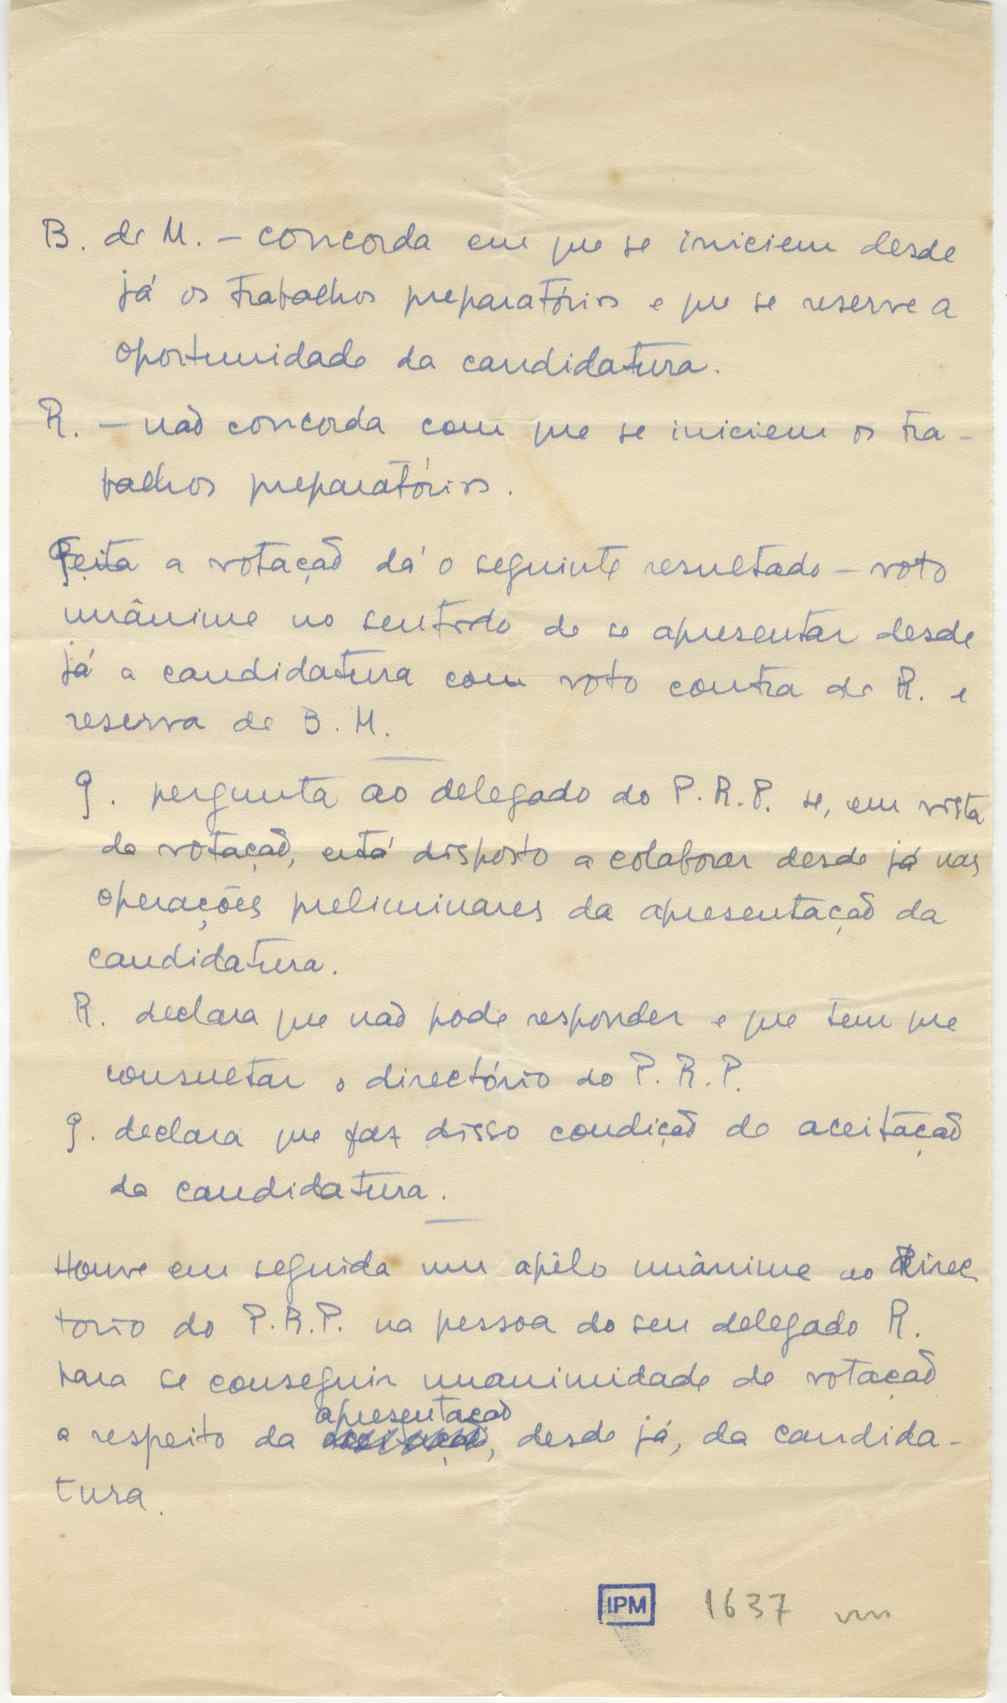 B. de M. – concorda em que se iniciem desde
já os trabalhos preparatórios e que se reserve a
oportunidade da candidatura.
R. – não concorda com que se iniciem os tra-
balhos preparatórios.
Feita a votação dá o seguinte resultado – voto
unânime no sentido de se apresentar desde
já a candidatura com voto contra de R. e
reserva de B. M.
J. pergunta ao delegado do P.R.P. se, em vista
da votação, está disposto a colaborar desde já nas
operações preliminares da apresentação da
candidatura.
R. declara que não pode responder e que tem que
consultar o directório do P.R.P.
J. declara que faz disso condição de aceitação
da candidatura.
Houve em seguida um apêlo unânime ao Direc
torio do P.R.P. na pessoa do seu delegado R.
para se conseguir unanimidade de votação
apresentação
a respeito da , desde já, da candida-
tura.
IPM 1637